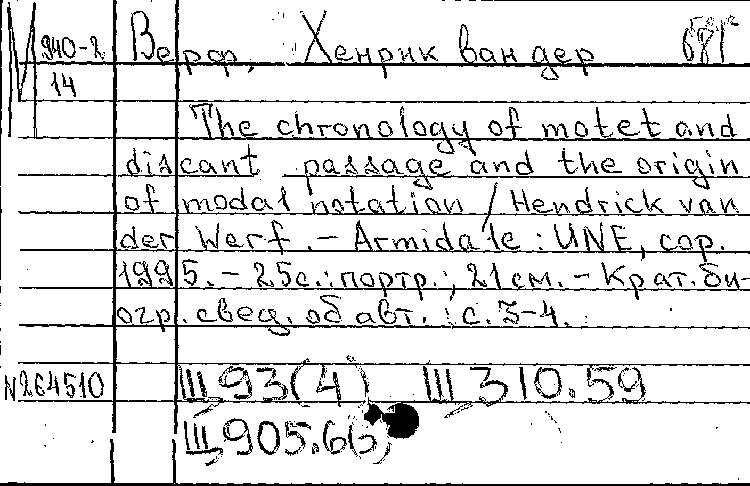 И 940-2
14
Верф, Хенрик ван дер
The chronology of motet and
discant passage and the origin
of modal notation / Hendrick van
der Werf. - Armidale : UNE, cop.
1995. - 25с. : портр. ; 21 см. - Крат. би-
огр. свед. об авт. : с. 3-4.
N264510 Щ93(4) Щ310.59
Щ905.6(5)